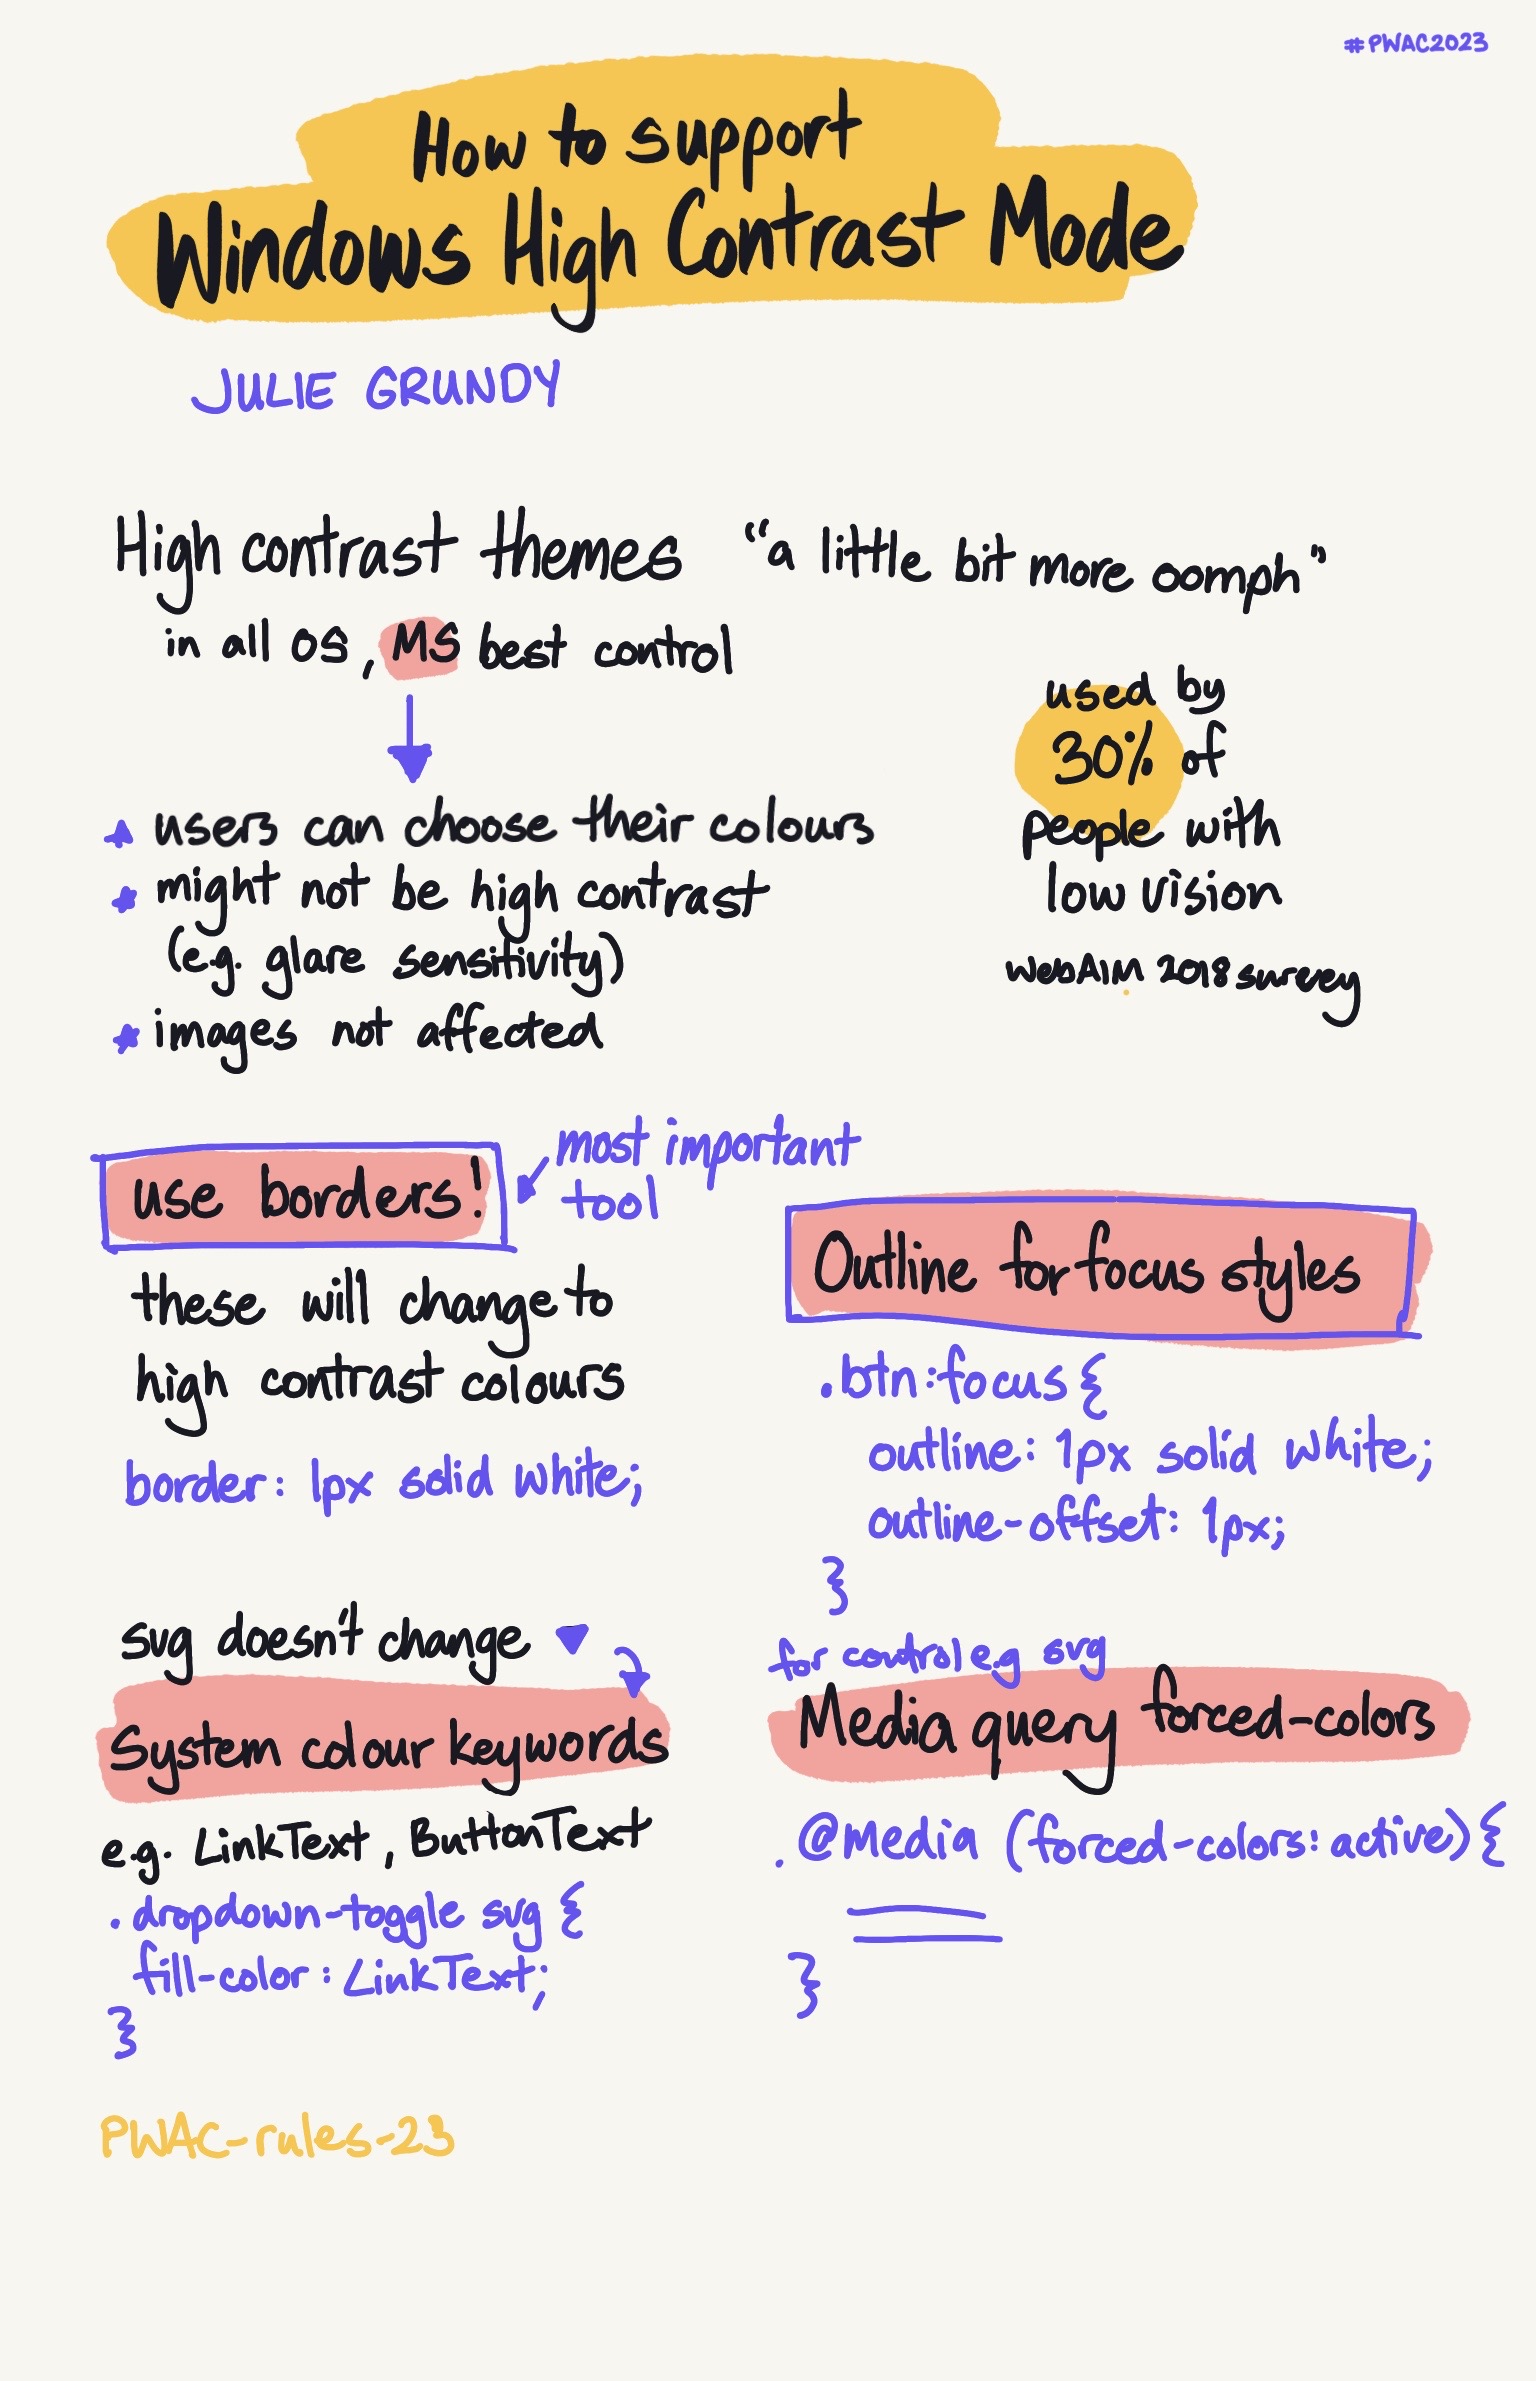 #PWAC2023
How to support
Windows High Contrast Mode
JULIE GRUNDY
High contrast themes
"a little bit more oomph"
in all OS, MS best control
users can choose their colours
might not be high contrast
(e.g. glare sensitivity)
images not affected
used by
30% of
people with
low vision
WebAIM 2018 survey
use borders!
most important
tool
these will change to
high contrast colours
border: 1px solid white;
Outline for focus styles
.btn:focus {
outline: 1px solid white;
outline-offset: 1px;
}
svg doesn't change
System colour keywords
e.g. LinkText, ButtonText
.dropdown-toggle svg {
fill-color: LinkText;
}
for control e.g svg
Media query forced-colors
. @media (forced-colors: active) {
}
PWAC-rules-23